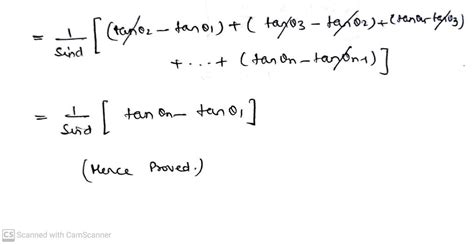 = 1/Sind [ (tanθ2 - tanθ1) + ( tanθ3 - tanθ2) + (tanθ4 - tanθ3)
+ ... + (tanθn - tanθn-1) ]
= 1/Sind [ tanθn - tanθ1 ]
(Hence Proved.)
CS Scanned with CamScanner